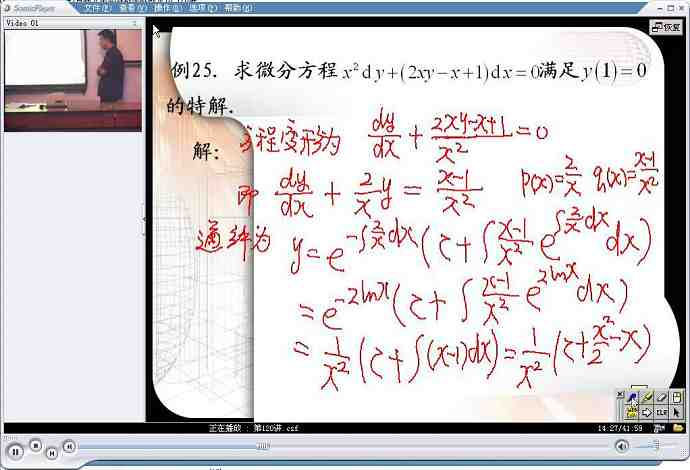 ScenicPlayer
文件(F) 查看(V) 操作(O) 选项(P) 帮助(H)
Video 01
恢复
例25. 求微分方程 x² dy+(2xy−x+1)dx=0满足y(1)=0
的特解.
解: 方程变形为 dy/dx + (2xy-x+1)/x² = 0
即 dy/dx + 2/x y = (x-1)/x² p(x)=2/x q(x)=(x-1)/x²
通解为 y = e^(-∫2/x dx) (c + ∫ (x-1)/x² e^(∫2/x dx) dx)
= e^(-2lnx) (c + ∫ (x-1)/x² e^(2lnx) dx)
= 1/x² (c + ∫(x-1)dx) = 1/x² (c + x²/2 - x)
CLR
正在播放 : 第120讲.csf
14:27/41:59